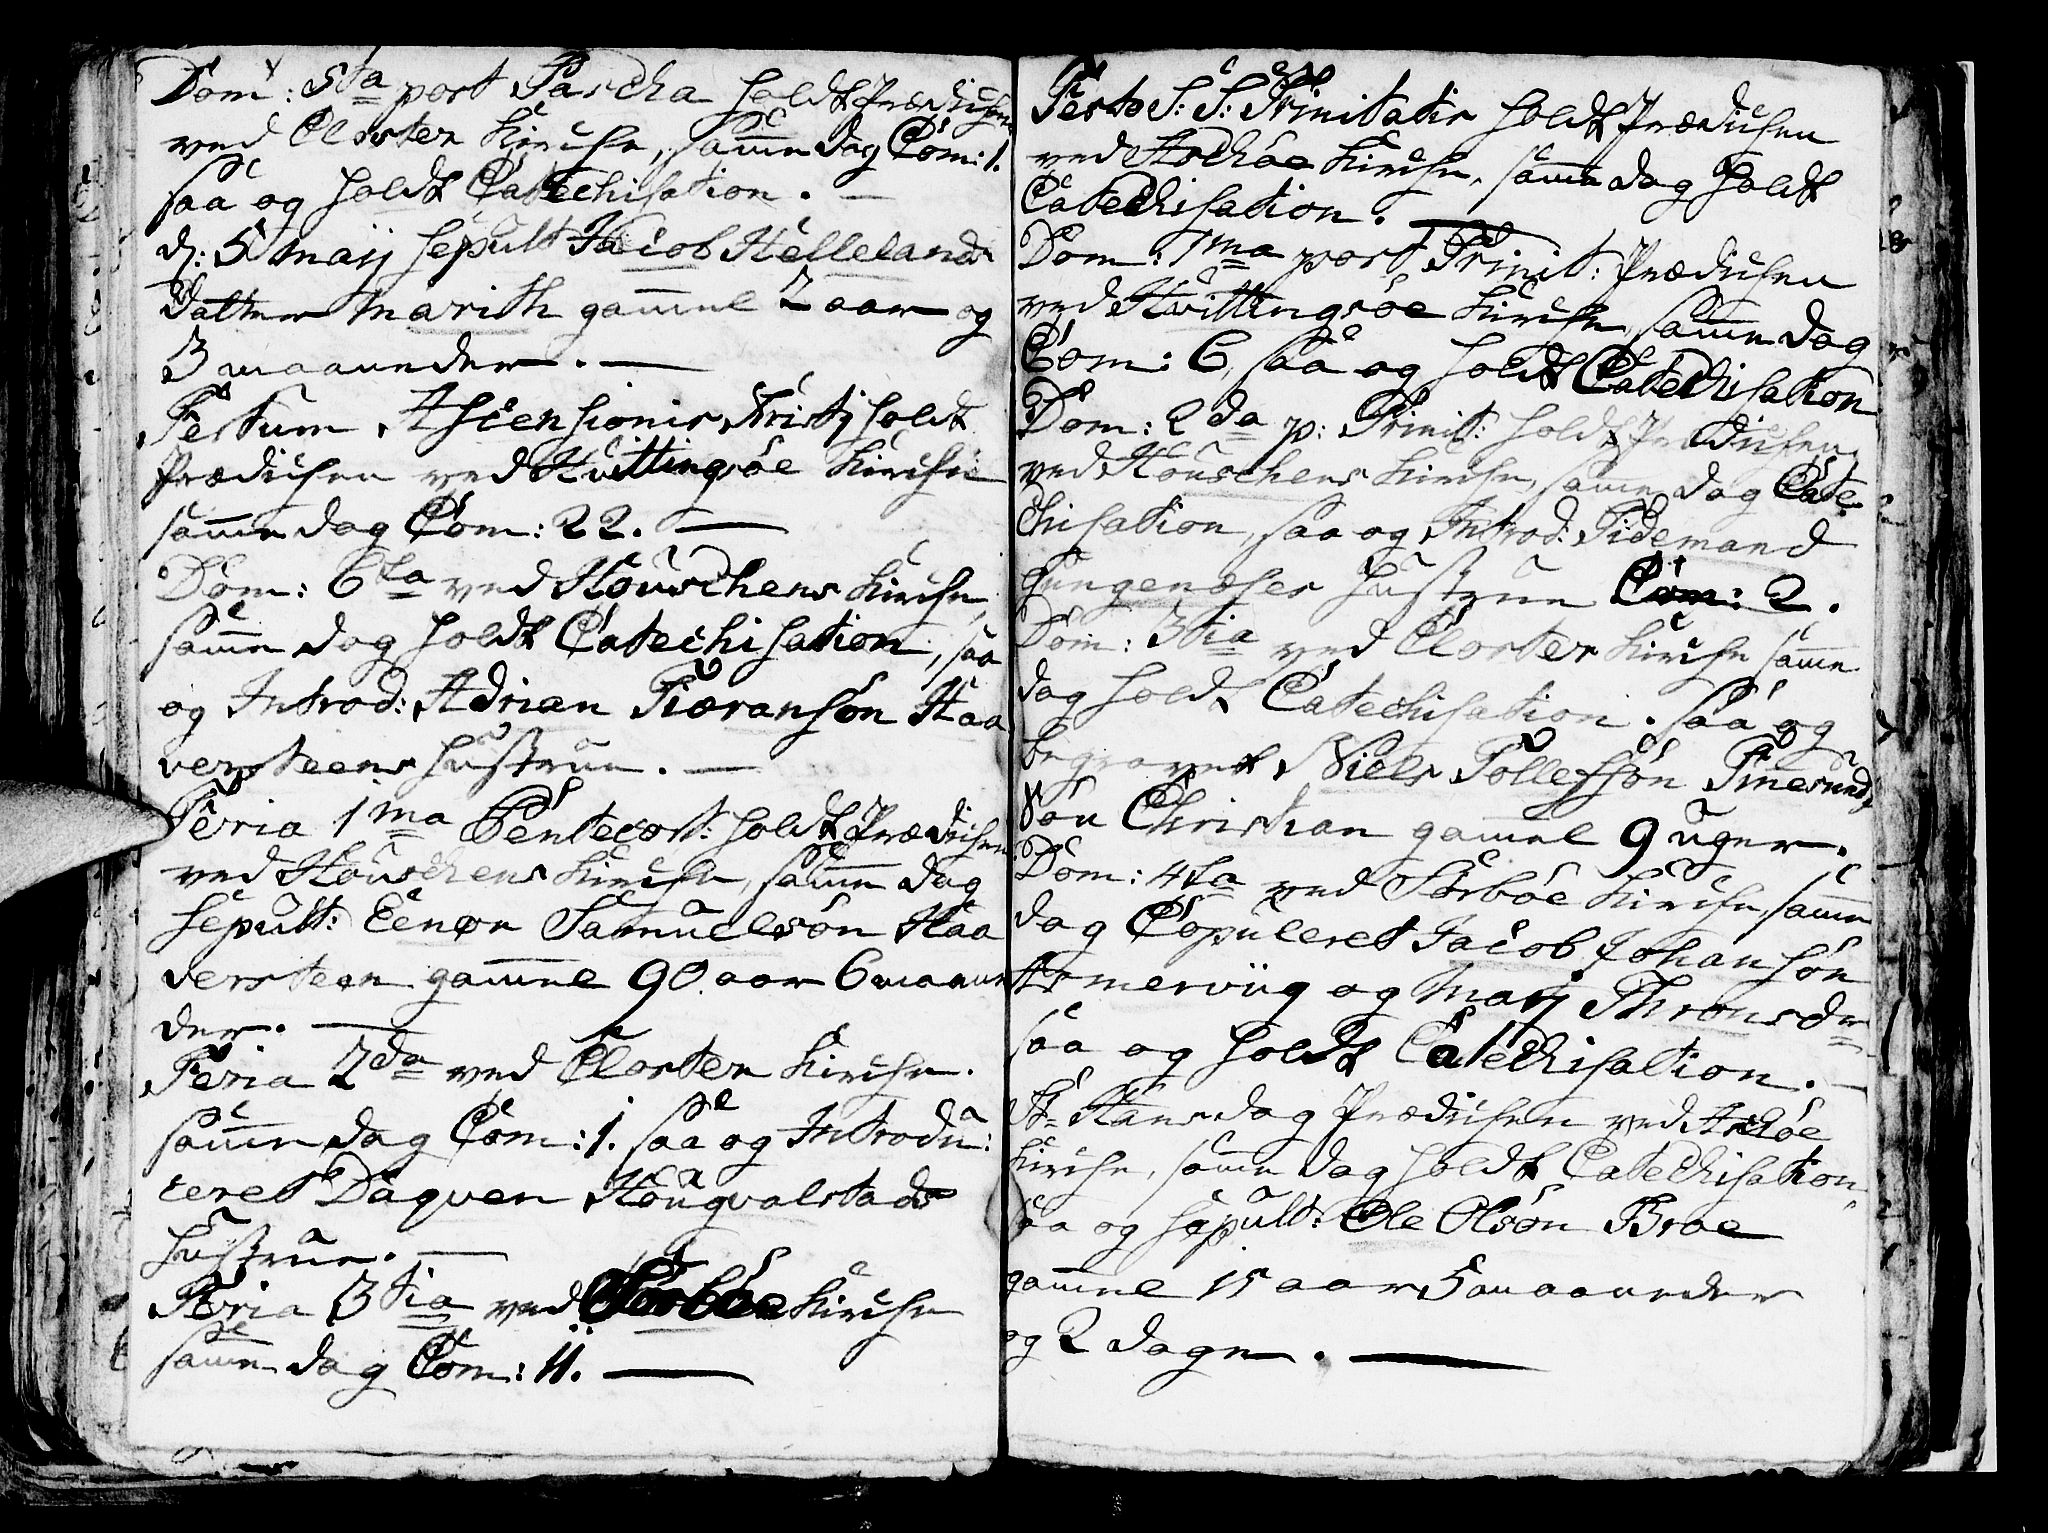 Dom: 5ta post Pascha holdt Prædichen
ved Closter Kirche, samme dag Com: 1.
saa og holdt Catechisation. —
d: 5 Maij sepult Jacob Hellelands
datter Marith gammel 2 aar og
3 maaneder. —
Festum Ascensionis Kristij holdt
Prædichen ved Hvittingsöe Kirche
samme dag Com: 22. —
Dom: 6ta ved Houschens Kirche,
samme dag holdt Catechisation, saa
og Introd: Adrian Pieransön Haa
versteens hustrue. —
Feria 1ma Pentecost: holdt Prædichen
ved Houschens Kirche, samme dag
sepult: Eenor Samuelsön Haa
versteen gammel 90 aar 6 maane
der. —
Feria 2da ved Closter Kirche.
samme dag Com: 1. saa og Introdu:
ceret Dagven Hougvalstads
hustrue. —
Feria 3tia ved Sörböe Kirche
samme dag Com: 11. —
Festo S: S: Trinitatis holdt Prædichen
ved Aschöe Kirche, samme dag holdt
Catechisation. —
Dom: 1ma post Trinit: Prædichen
ved Hvittingsöe Kirche, samme dag
Com: 6, saa og holdt Catechisation
Dom: 2da p: Trinit: holdt Prædichen
ved Houschens Kirche, samme dag Cate
chisation, saa og Introd: Tidemand
Gungenæses hustrue Com: 2.
Dom: 3tia ved Closter Kirche samme
dag holdt Catechisation. saa og
begravet Niels Tollefsön Finesunds
sön Christian gammel 9 uger.
Dom: 4ta ved Sörböe Kirche, samme
dag Copuleret Jacob Johansön
Asmerviig og Marj Thronsdr
saa og holdt Catechisation. —
St Hansdag Prædichen ved Aschöe
Kirche, samme dag holdt Catechisation
saa og sepult: Ole Olsön Broe
gammel 15 aar 5 maaneder
og 2 dage. —